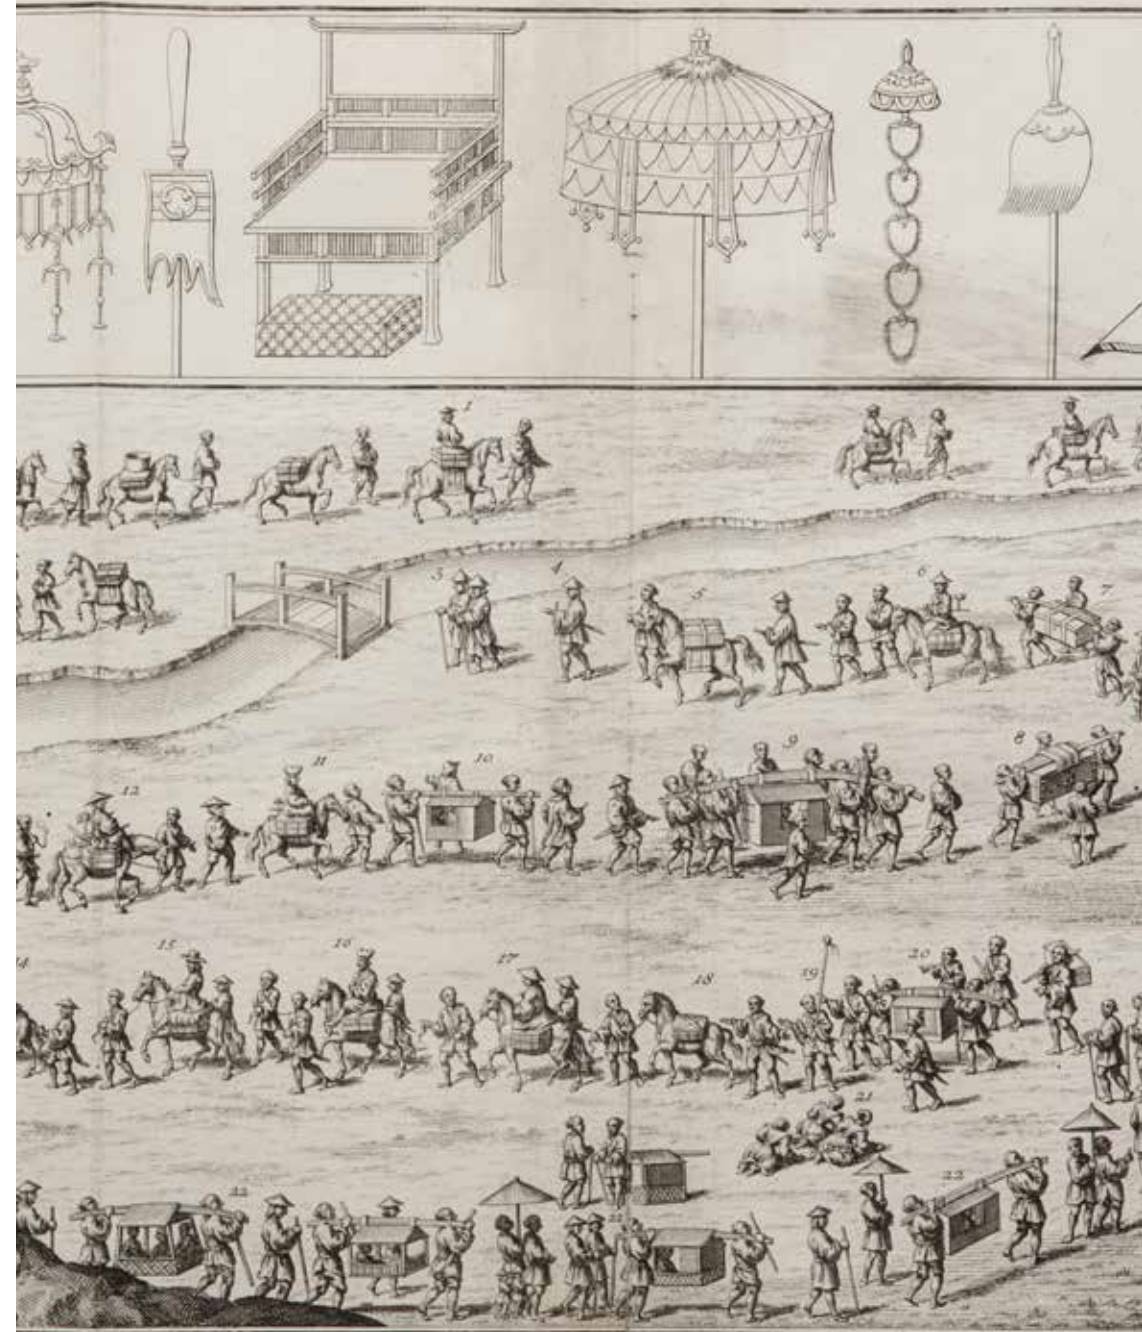 1
3 4 5 6 7
12 11 10 9 8
14 15 16 17 18 19 20
21
22 22